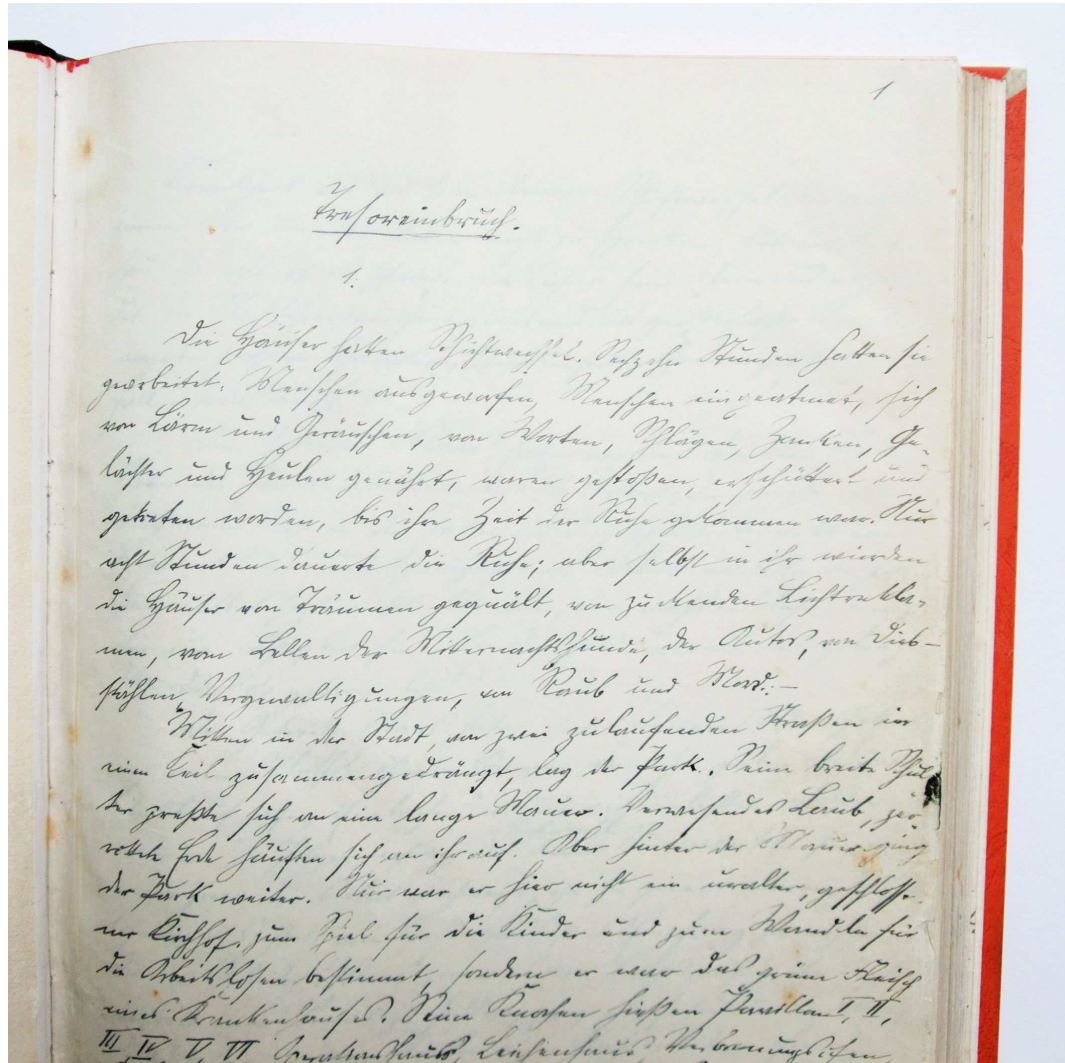 1
Tresoreinbruch.
1.
Die Häuser hatten Schichtwechsel. Sechzehn Stunden hatten sie
gearbeitet. Menschen ausgeworfen, Menschen eingeatmet, sich
von Lärm und Geräuschen, von Worten, Schlägen, Zanken, Ge-
lächter und Heulen genährt, waren gestoßen, erschüttert und
getreten worden, bis ihre Zeit der Ruhe gekommen war. Nur
acht Stunden dauerte die Ruhe; aber selbst in ihr wurden
die Häuser von Träumen gequält, von zuckenden Lichtrekla-
men, vom Bellen der Mitternachtshunde, der Autos, von Dieb-
stählen, Vergewaltigungen, von Raub und Mord. –
Mitten in der Stadt, von zwei zulaufenden Straßen in
einen Keil zusammengedrängt, lag der Park. Seine breite Schul-
ter preßte sich an eine lange Mauer. Verwesendes Laub,
Erde häuften sich an ihr auf. Aber hinter der Mauer ging
der Park weiter. Nur war er hier nicht ein uralter, geschlosse-
ner Kirchhof, zum Spiel für die Kinder und zum Wandeln für
die Arbeitslosen bestimmt, sondern er war das grüne Fleisch
eines Krankenhauses. Seine Knochen hießen Pavillon I, II,
III, IV, V, VI, Operationshaus, Leichenhaus,